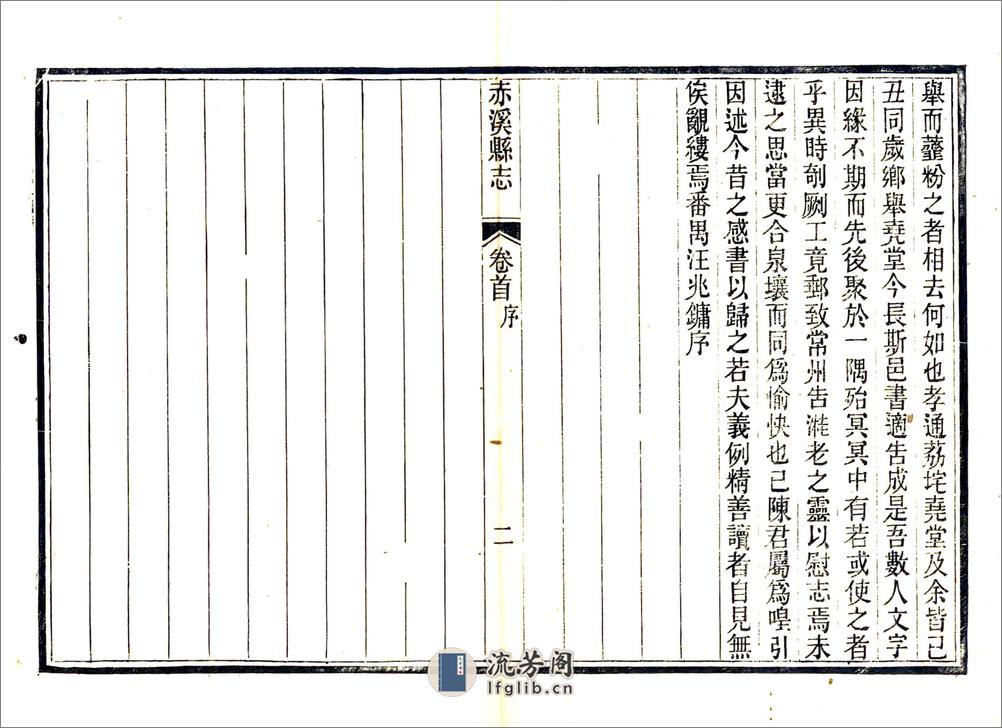 舉而虀粉之者相去何如也孝通荔垞堯堂及余皆己
丑同歲鄉舉堯堂今長斯邑書適吿成是吾數人文字
因緣不期而先後聚於一隅殆冥冥中有若或使之者
乎異時剞劂工竟郵致常州吿漼老之靈以慰志焉未
逮之思當更合泉壤而同爲愉快也已陳君屬爲喤引
因述今昔之感書以歸之若夫義例精善讀者自見無
俟覼縷焉番禺汪兆鏞序
赤溪縣志
卷首
序
二
流芳阁
lfglib.cn